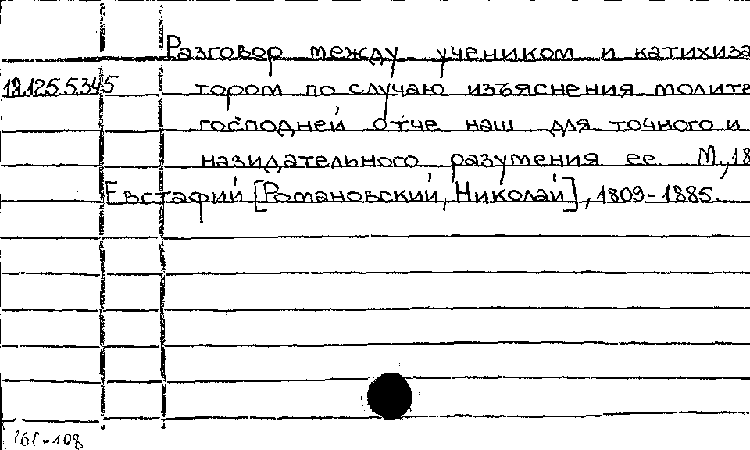 Разговор между учеником и катихиза
18.125.5.345 тором по случаю изъяснения молит
господней отче наш для точного и
назидательного разумения ее. М., 18
Евстафий [Романовский, Николай], 1809-1885.
161-108